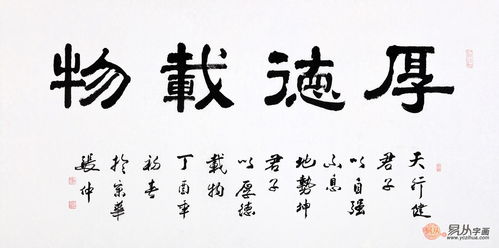 厚德載物
天行健
君子
以自强
不息
地勢坤
君子
以厚德
載物
丁酉年
初春
於京華
張坤
易从字画
www.yizihua.com